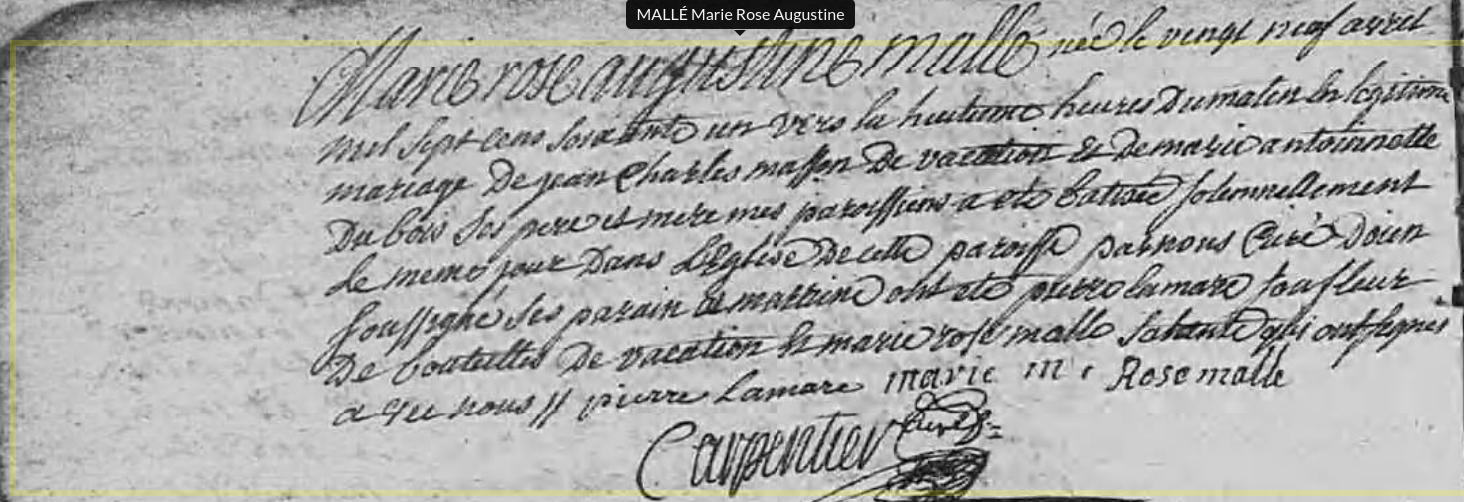 MALLÉ Marie Rose Augustine
Marie rose augustine mallé née le vingt neuf avril
mil sept cens soixante un vers la huitieme heures Du matin En legitime
mariage De jean Charles masson De vacation & De marie antoinnette
Du bois Ses pere et mere mes paroissiens a eté batisée solemnellement
Le meme jour Dans L'Eglise De cette paroisse par nous Curé Doien
soussigné ses parain & marraine ont eté pierre lamare soufleur
De bouteilles De vacation & marie rose malle sa tante qui ont signes
avec nous // pierre Lamare marie Rose malle
Carpentier Curé